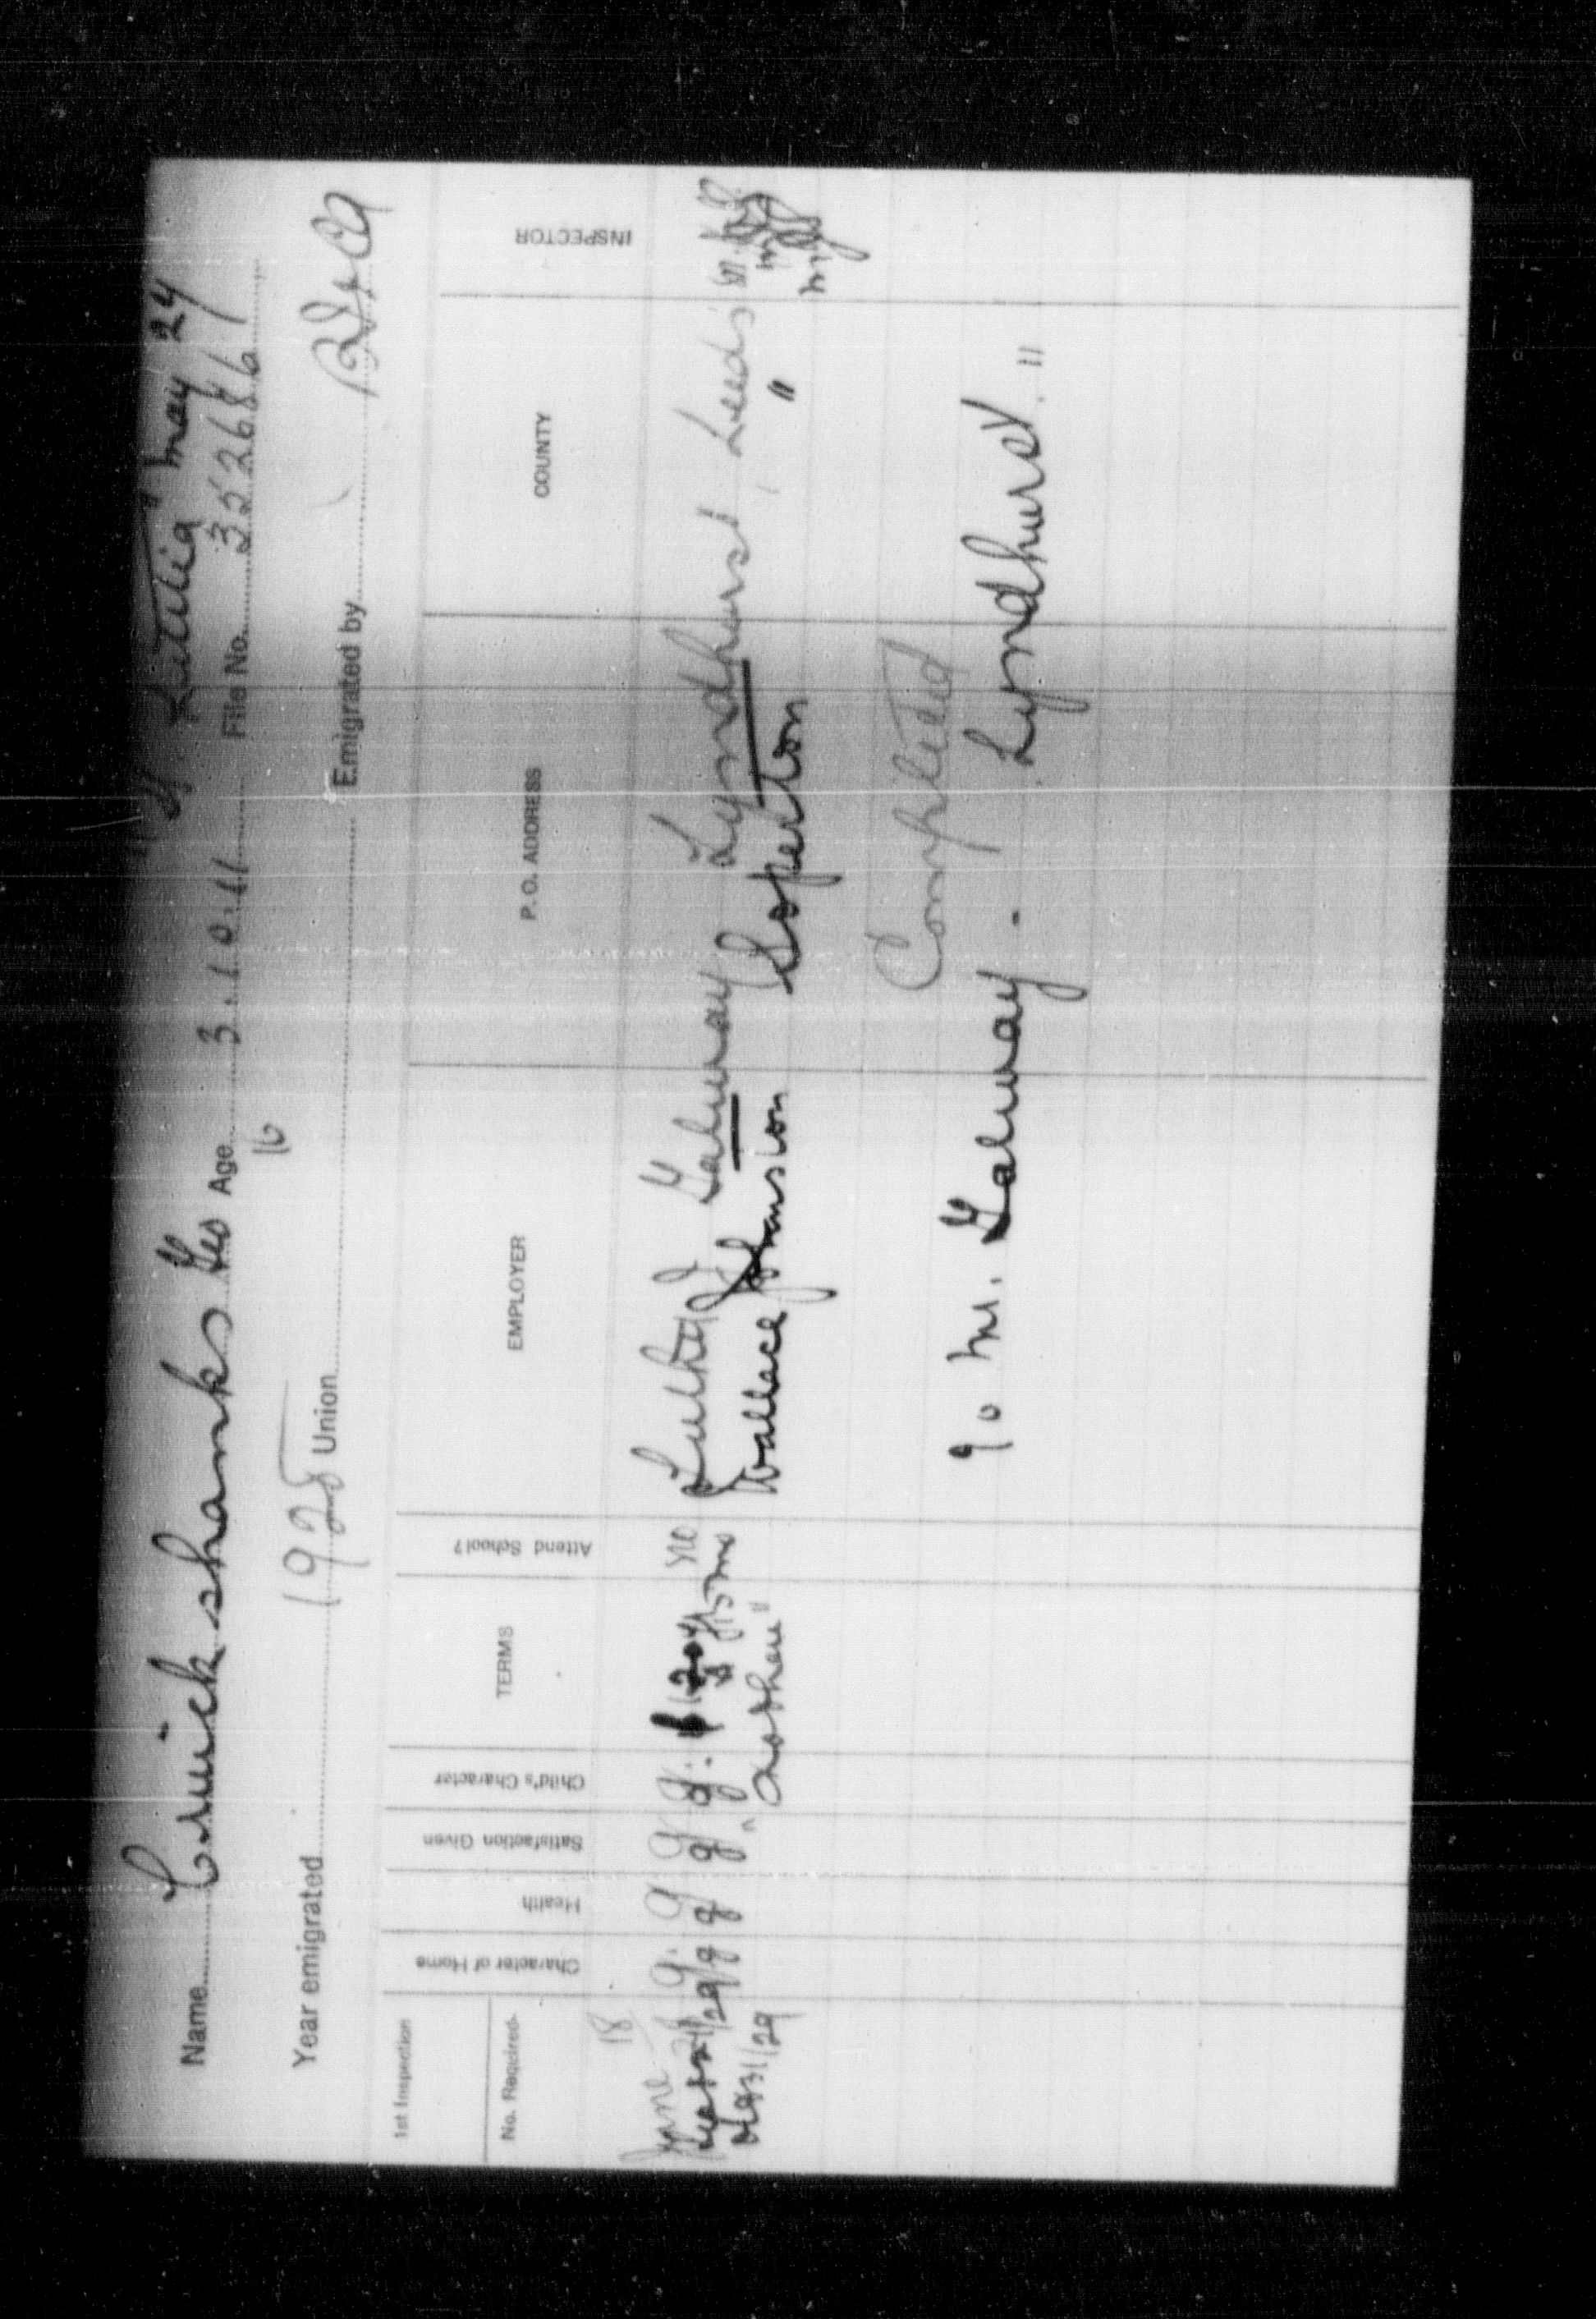 Letitia" May 24
Name Cruickshanks Geo Age 3.10.11 File No. 322686
16
Year emigrated 1928 Union Emigrated by
1st Inspection
No. Required
Character of Home
Health
Satisfaction Given
Child's Character
TERMS
Attend School?
EMPLOYER
P.O. ADDRESS
COUNTY
INSPECTOR
June 18 g. g g g. no Luther Galway Lyndhurst, Leeds
g g g g. 15 mo Wallace Johnston Soperton "
31/29
Completed
c/o Mr. Galway - Lyndhurst. "